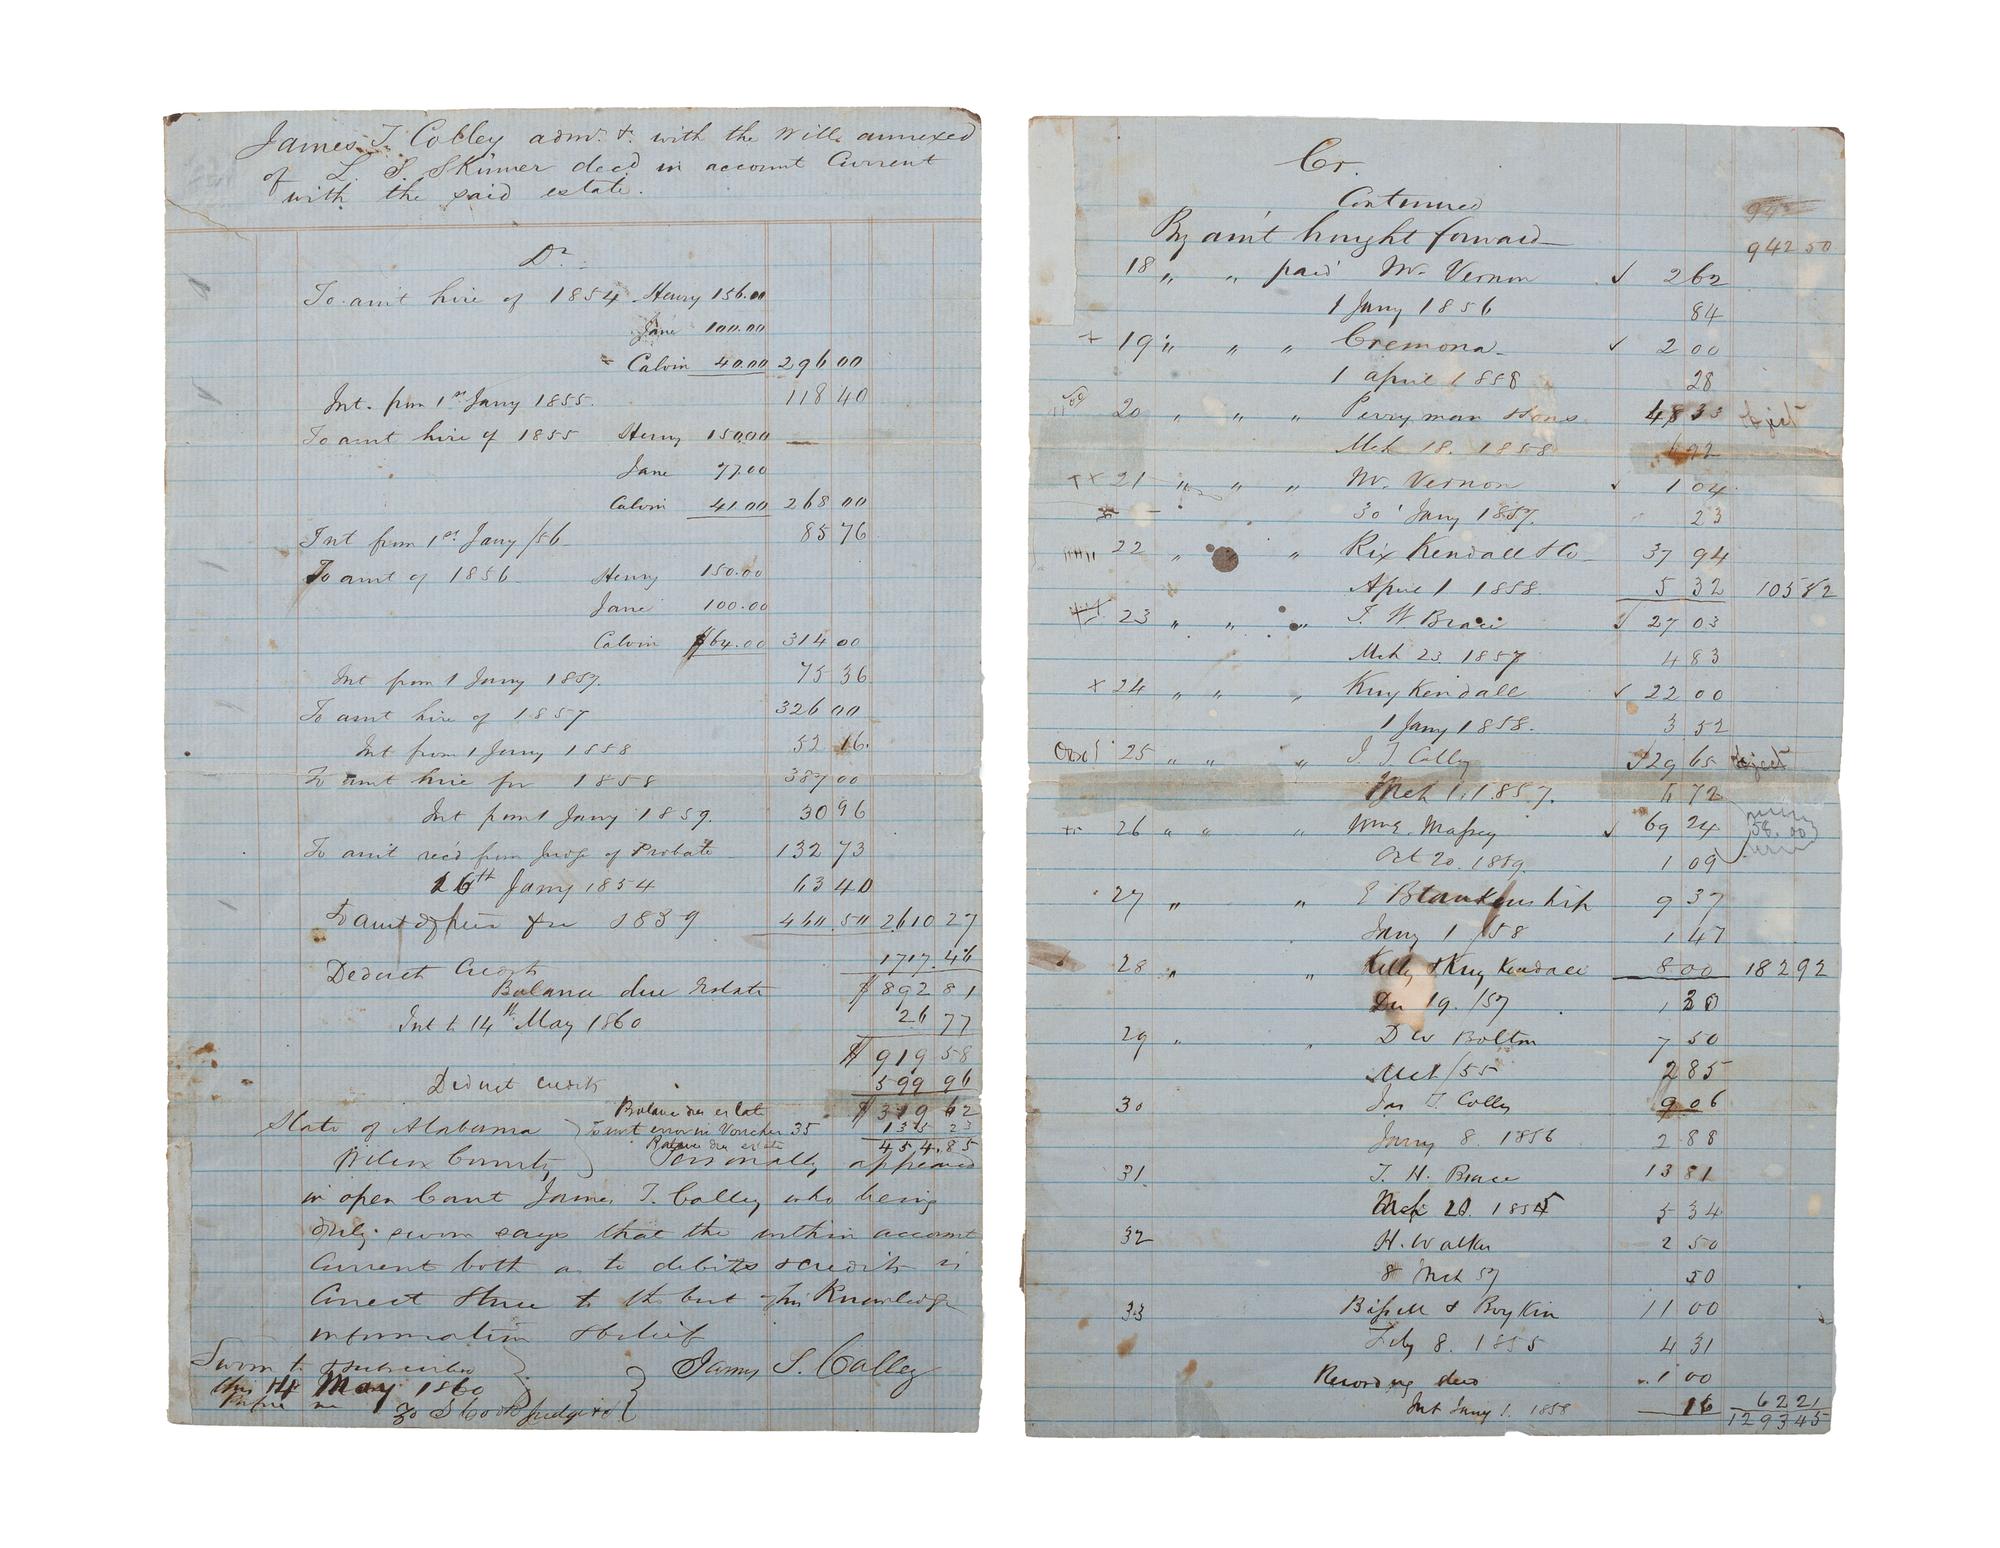 James T. Colley admr &. with the Will annexed
of L. S. Skinner decd in account Current
with the said estate.
Dr
To amt hire of 1854 Henry 156.00
Jane 100.00
Calvin 40.00 296 00
Int. from 1st Jany 1855. 118 40
To amt hire of 1855 Henry 150.00
Jane 77.00
Calvin 41.00 268 00
Int from 1st Jany /56 85 76
To amt of 1856 Henry 150.00
Jane 100.00
Calvin $64.00 314 00
Int from 1 Jany 1857. 75 36
To amt hire of 1857 326 00
Int from 1 Jany 1858 52 16.
To amt hire for 1858 387 00
Int from 1 Jany 1859. 30 96
To amt rec'd from Judge of Probate 132 73
16th Jany 1854 63 40
To amt of hire for 1859 460.50 2610 27
Deduct Credits 1717.46
Balance due Estate $892 81
Int to 14th May 1860 26 77
$919 58
Deduct credits 599 96
Balance due estate $319 62
State of Alabama To amt error in Voucher 35 135 23
Balance due estate 454.85
Wilcox County Personally appeared
in open Court James T. Colley who being
duly sworn says that the within account
Current both as to debits & credits is
Correct & true to the best of his Knowledge
information & belief
Sworn to & subscribed James T. Colley
this 14 May 1860
Before me
Cook Judge
Cr.
Continued
By am't brought forward 942 50
18 " " paid Mt. Vernon ✓ 2 62
1 Jany 1856 84
+ 19 " " " Cremona ✓ 2 00
1 april 1858 28
20 " " " Perryman & Sons 48 33 object
Mch 18. 1858 6 92
++ 21 " " " Mt. Vernon ✓ 1 04
30 Jany 1857. 23
22 " " Rix Kendall & Co 37 94
April 1 1858. 5 32 105 82
23 " " " T. H Brace ✓ 27 03
Mch 23. 1857 4 83
+ 24 " " " Kuykendall ✓ 22 00
1 Jany 1858. 3 52
25 " " " J. T. Colley ✓ 29 65 object
Mch 1. 1857. 6 72
26 " " " Wm E. Massey ✓ 69 24 58.00
Oct 20. 1859. 1 09
27 " " E Blankenship 9 37
Jany 1 /58 1 47
28 " " Kelly & Kuykendall 8 00 182 92
Dec 19. /57 1 30
29 " " D W Bolton 7 50
Mch /55 2 85
30 Jas T. Colley 9 06
Jany 8. 1856 2 88
31. T. H. Brace 13 81
Mch 20. 1855 5 34
32 H. Walker 2 50
8 Mch 57 50
33 Bissell & Boykin 11 00
Feby 8. 1855 4 31
Recording deed 1 00
Int Jany 1. 1858 16 62 21
1293 45